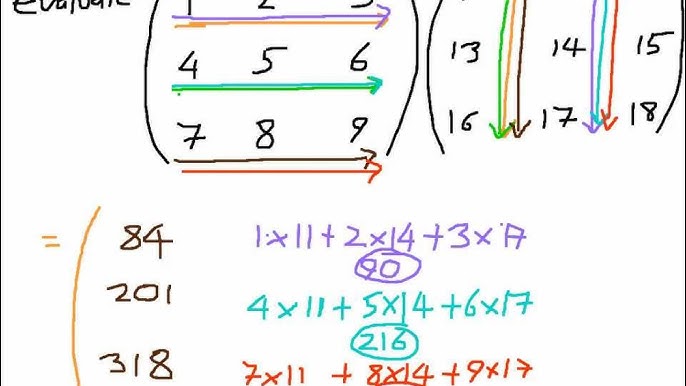 evaluate
1 2 3
4 5 6 13 14 15
7 8 9 16 17 18
= 84 1x11+2x14+3x17
90
201 4x11+5x14+6x17
216
318 7x11 + 8x14 +9x17